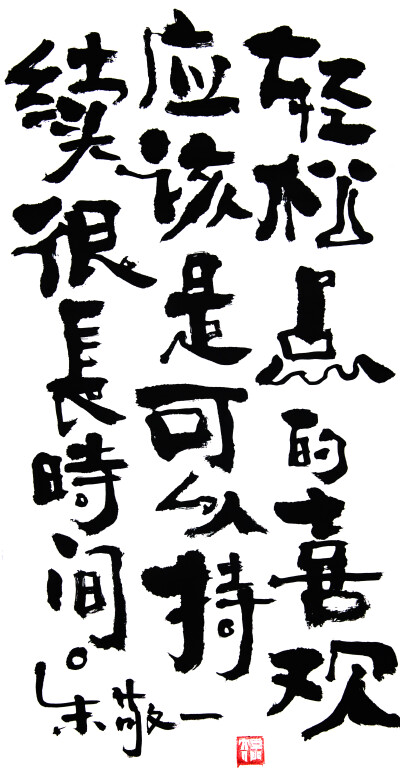 轻松点的喜欢
应该是可以持
续很長時间。
朱敬一